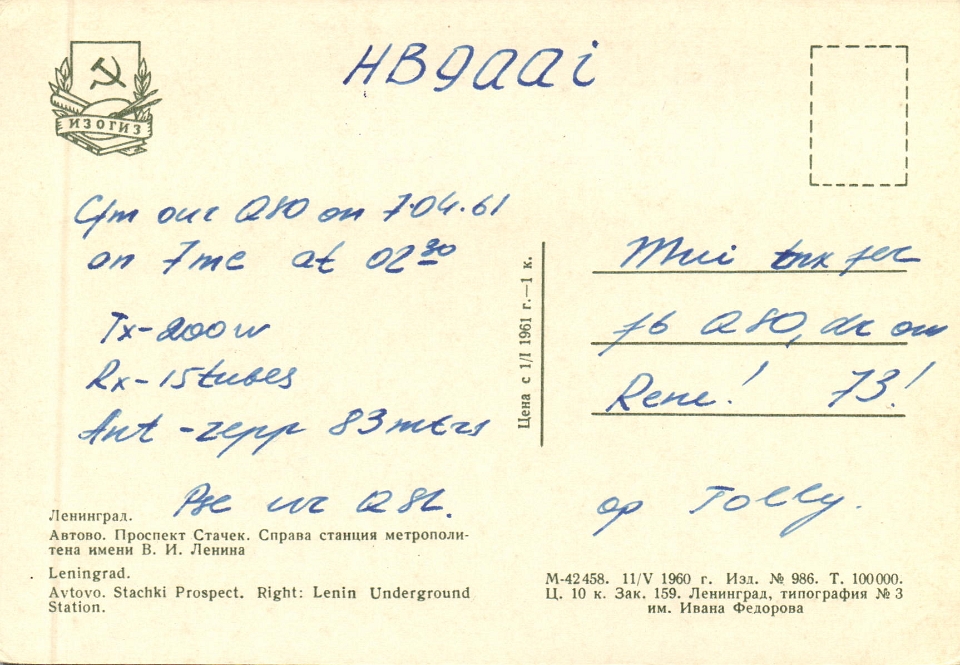 HB9AAi
ИЗОГИЗ
Cfm our QSO on 7.04.61
on 7mc at 02 30
Tx-200w
Rx-15tubes
Ant-zepp 83mtrs
Pse ur QSL.
Цена с 1/I 1961 г.—1 к.
Mni tnx fer
fb QSO, dr om
Rene! 73!
op Tolly.
Ленинград.
Автово. Проспект Стачек. Справа станция метрополи-
тена имени В. И. Ленина
Leningrad.
Avtovo. Stachki Prospect. Right: Lenin Underground
Station.
М-42458. 11/V 1960 г. Изд. № 986. Т. 100000.
Ц. 10 к. Зак. 159. Ленинград, типография № 3
им. Ивана Федорова